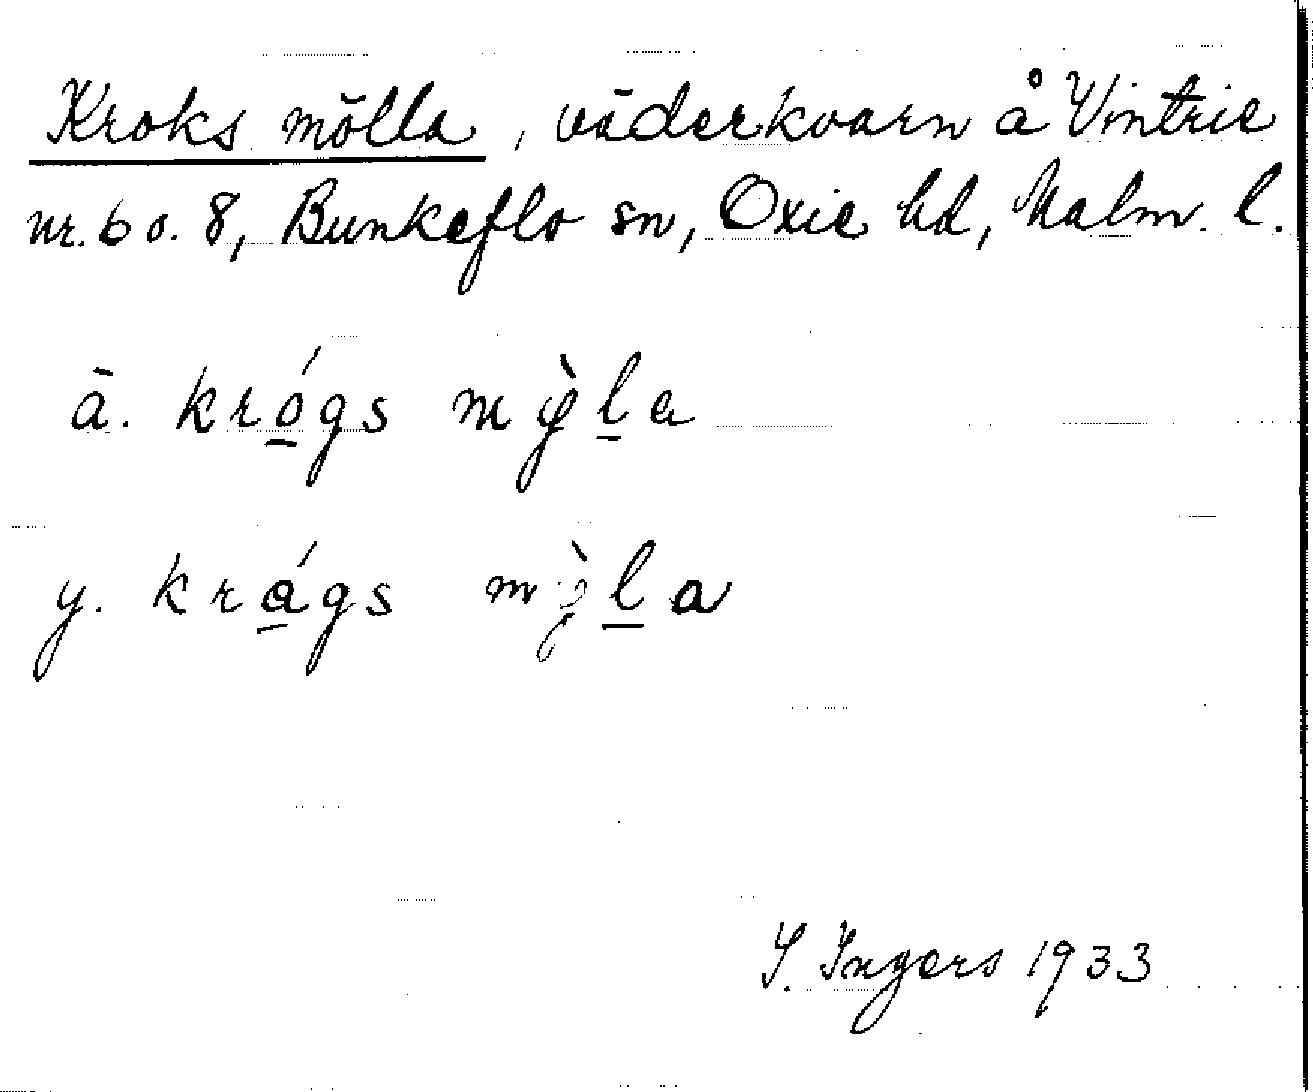 Kroks mölla, väderkvarn å Vintrie
nr. 6 o. 8, Bunkeflo sn, Oxie hd, Malm. l.
ä. kró̲gs mø̀l̲a
y. krá̲gs mø̀l̲a
I. Ingers 1933